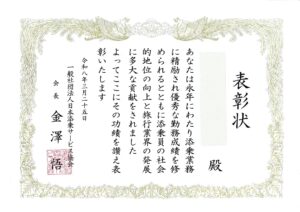 表彰状
殿
あなたは永年にわたり添乗業務
に精励され優秀な勤務成績を修
められるとともに添乗員の社会
的地位の向上と旅行業界の発展
に多大な貢献をされました
よってここにその功績を讃え表
彰いたします
令和八年三月二十五日
一般社団法人日本添乗サービス協会
会長 金澤 悟